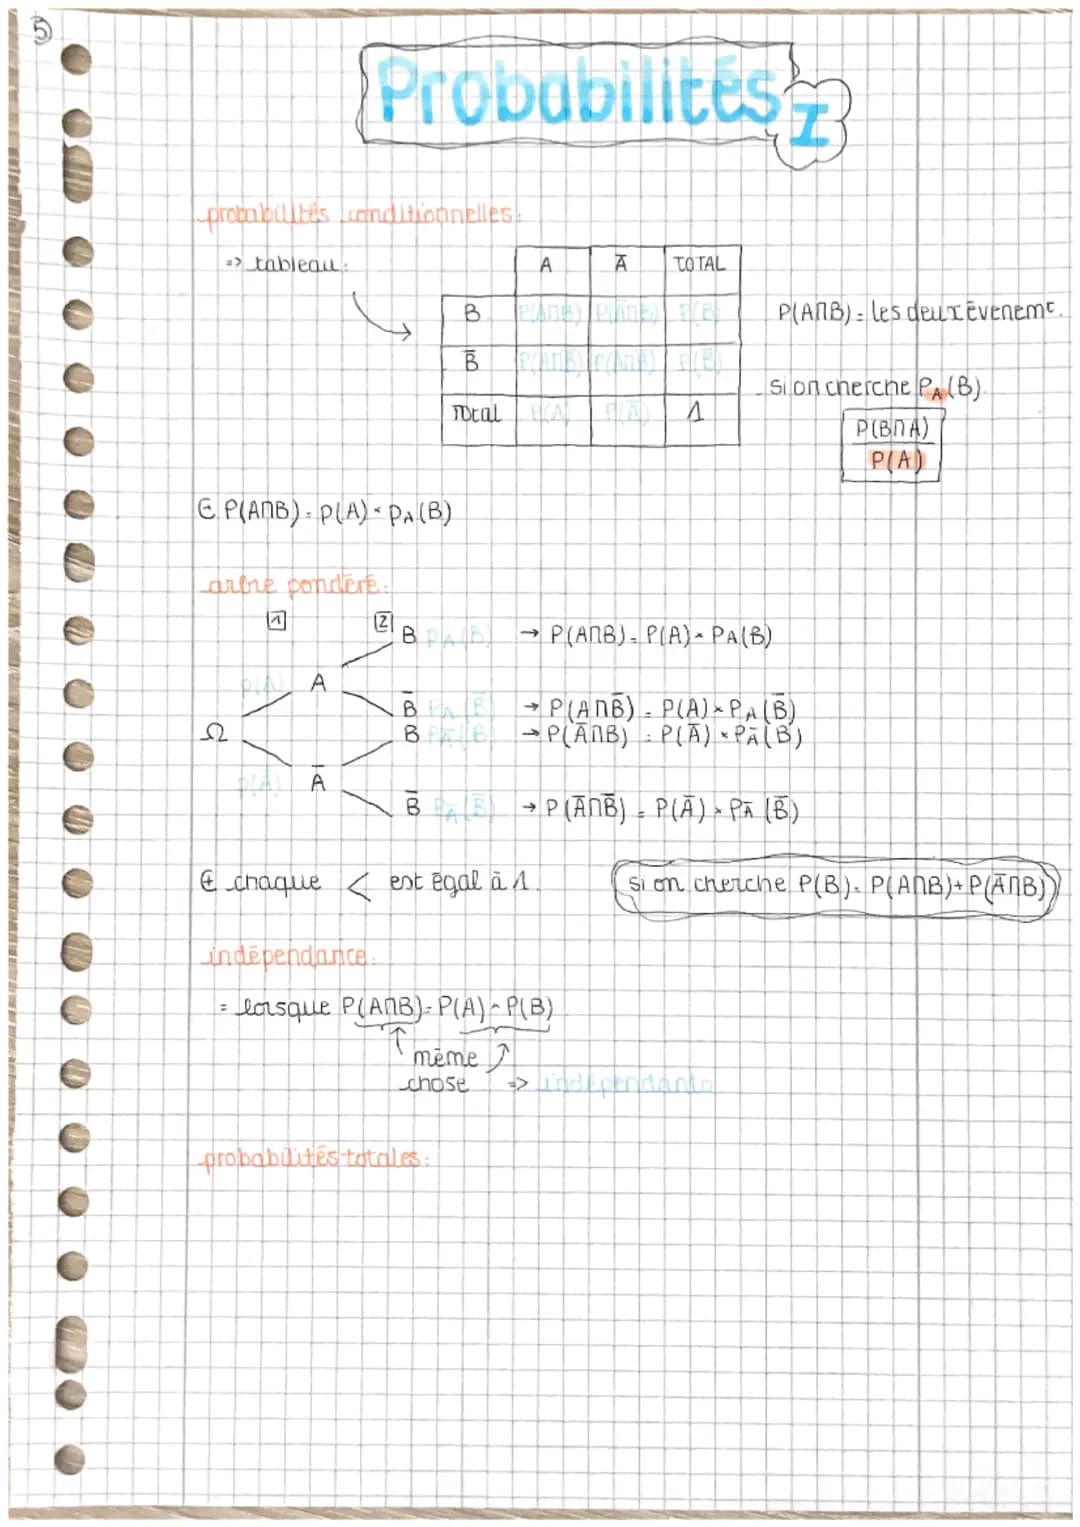 5
Probabilités I
probabilités conditionnelles:
=> tableau:
A Ā TOTAL
B P(A∩B) P(Ā∩B) P(B)
B̄ P(A∩B̄) P(Ā∩B̄) P(B̄)
Total P(A) P(Ā) 1
P(A∩B) = les deux évenemt.
si on cherche P_A(B)
P(B∩A)
P(A)
∈ P(A∩B) = P(A) × P_A(B)
arbre pondéré:
1 2
B P_A(B) → P(A∩B) = P(A) × P_A(B)
P(A) A
B̄ P_A(B̄) → P(A∩B̄) = P(A) × P_A(B̄)
Ω B P_Ā(B) → P(Ā∩B) = P(Ā) × P_Ā(B)
P(Ā) Ā
B̄ P_Ā(B̄) → P(Ā∩B̄) = P(Ā) × P_Ā(B̄)
∈ chaque < est égal à 1.
si on cherche P(B) = P(A∩B) + P(Ā∩B)
indépendance:
= lorsque P(A∩B) = P(A) × P(B)
même
chose => indépendants
probabilités totales: